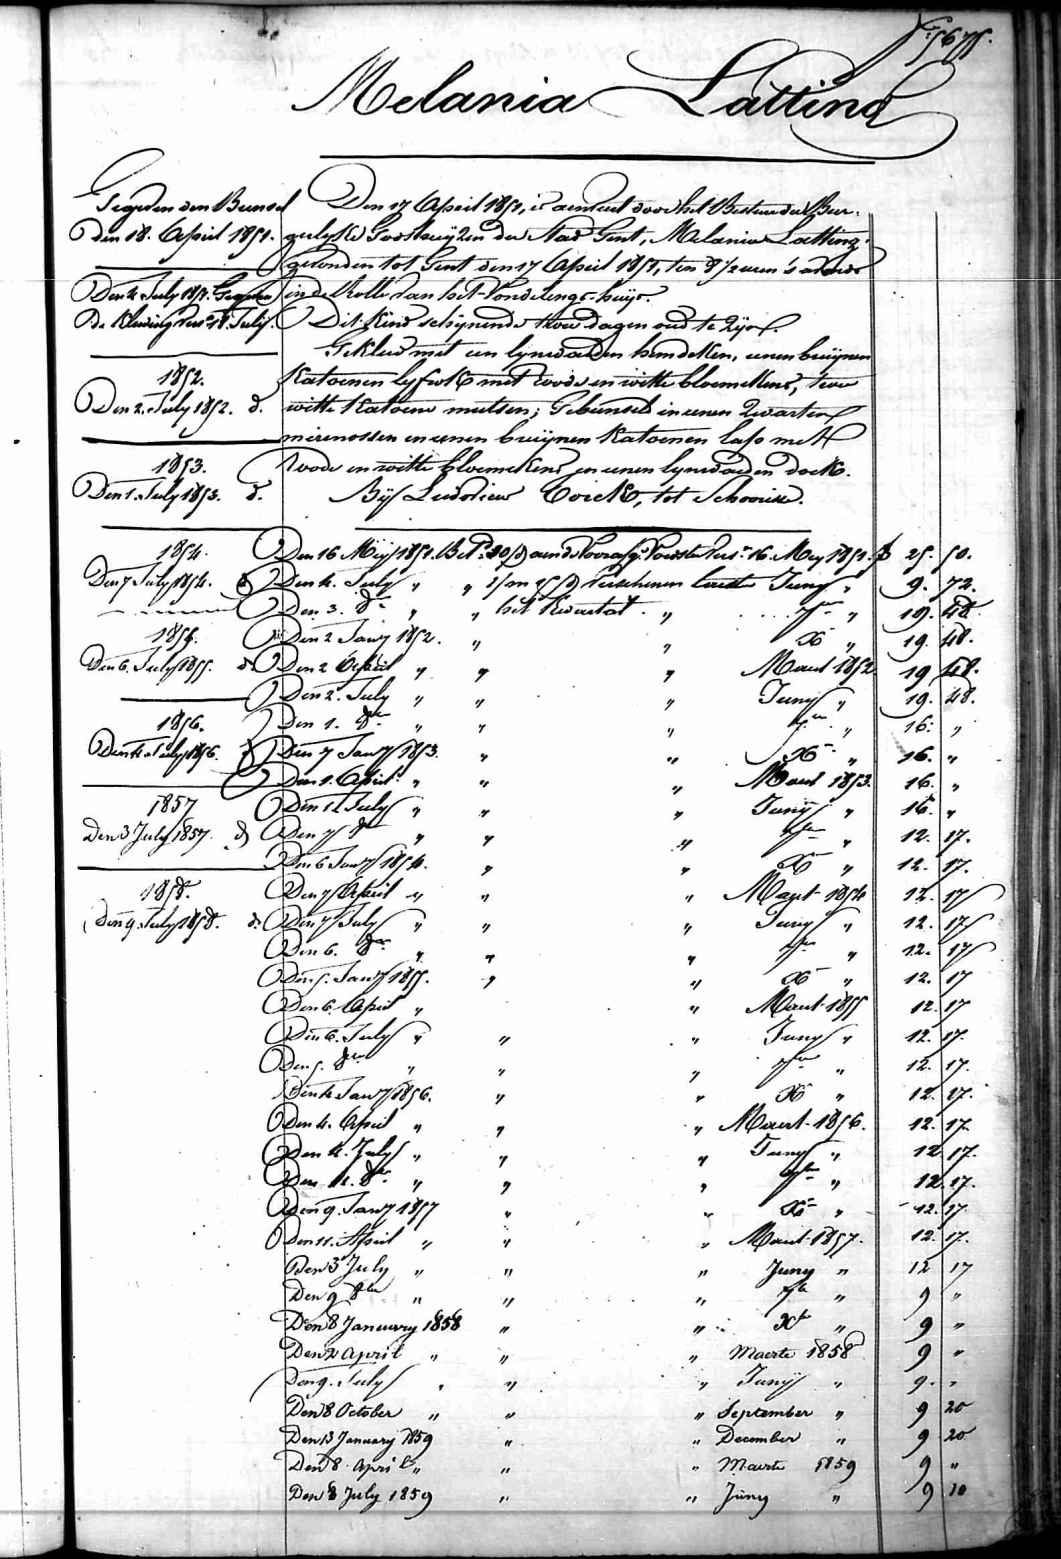 Melania Latting
Gegeven den Bunsel
den 18. April 1851.
Den 4 July 1851. Gegeven
de Kleeding vers. 18. July.
1852.
Den 2. July 1852. d.
1853.
Den 1. July 1853. d.
1854.
Den 7 July 1854. d
1855.
Den 6. July 1855. d.
1856.
Den 4 July 1856. d
1857
Den 3 July 1857. d
1858.
Den 9. July 1858. d.
Den 17 April 1851, is aenveert door het Bestuer der Bur-
gerlyke Godshuyzen der Stad Gent, Melania Latting
gevonden tot Gent den 17 April 1851, ten 8 1/2 uren 's avonds
in de Rolle van het Vondelings-huys.
Dit Kind schynende twee dagen oud te zyn.
Gekleed met een lynwaeden hemdeken, eenen bruynen
Katoenen lyfrok met roode en witte bloemekens, twee
witte Katoene mutsen; Gebunseld in eenen zwarten
merinossen en eenen bruynen Katoenen lap met
roode en witte bloemekens en eenen lynwaeden doek.
Bij Ludovicus Coick, tot Schoorisse.
Den 16 Meij 1851. Bet. aen de Voors. Voedster vers. 16. Mey 1851. 25. 50.
Den 4. July " " 1/m verschenen laeste Juny " 9. 72.
Den 3. 8re " " het Kwartael " 7re " 19. 48.
Den 2 Jany 1852. " " X " 19. 48.
Den 2 April " " " Maert 1852. 19 48.
Den 2. July " " " Juny " 19. 48.
Den 1. 8re " " " 7re " 16. "
Den 7 Jany 1853. " " X " 16. "
Den 1. April " " " Maert 1853. 16. "
Den 12 July " " " Junij " 16. "
Den 7 8re " " " 7re " 12. 17.
Den 6 Jany 1854. " " X " 12. 17.
Den 7 April " " " Maert 1854 12. 17
Den 7 July " " " Juny " 12. 17
Den 6. 8re " " " 7re " 12. 17
Den 5. Jany 1855. " " X " 12. 17
Den 6. April " " Maert 1855 12. 17
Den 6. July " " " Juny " 12. 17.
Den 5. 8re " " " 7re " 12. 17.
Den 4 Jany 1856. " " X " 12. 17.
Den 4. April " " " Maert 1856. 12. 17
Den 4. July " " " Juny " 12. 17.
Den 8re " " " 7re " 12. 17.
Den 9. Jany 1857 " " X " 12. 17.
Den 11. April " " " Maert 1857. 12. 17.
Den 3 July " " " Juny " 12 17
Den 9 8bre " " " 7b " 9 "
Den 8 January 1858 " " Xb " 9 "
Den 2 April " " " Maerte 1858 9 "
Den 9. July " " " Junij " 9. "
Den 8 October " " " September " 9 20
Den 13 January 1859 " " December " 9 20
Den 8 April " " " Maerte 1859 9 "
Den 8 July 1859 " " Juny " 9 10